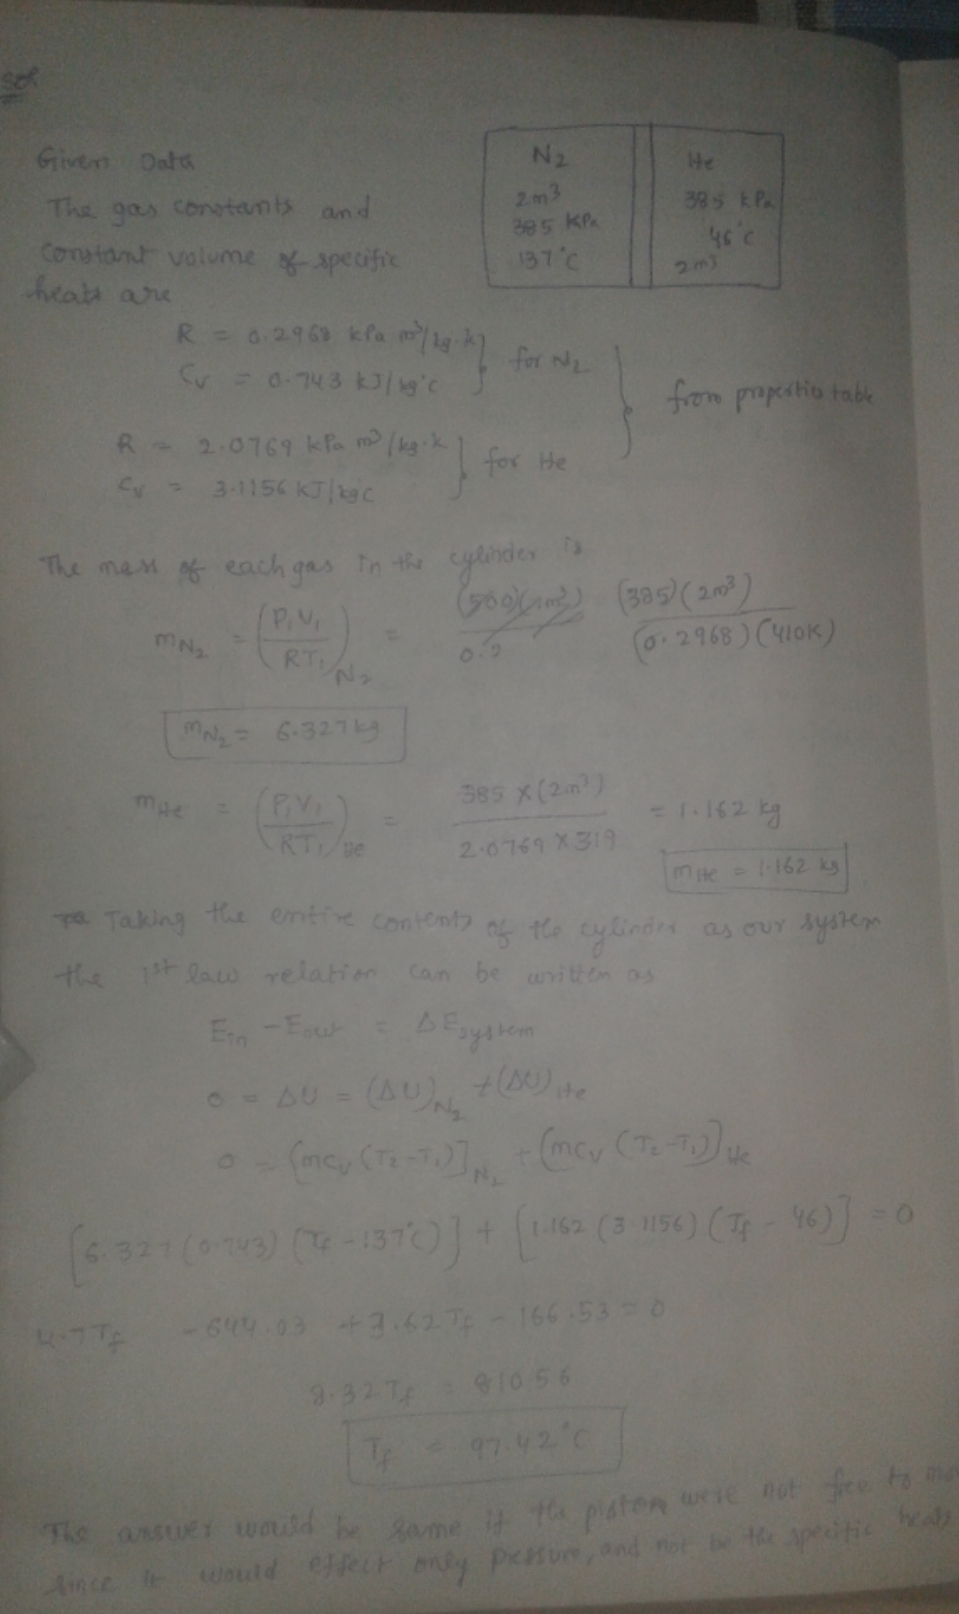 Sol
Given Data
The gas constants and
constant volume of specific
heats are
N2
2m³
385 KPa
137°C
He
385 kPa
46°C
2m³
R = 0.2968 kPa m³/kg.k } for N2
Cv = 0.743 kJ/kg°c
R = 2.0769 kPa m³/kg.k } for He
Cv = 3.1156 KJ/kgc
from properties table
The mass of each gas in the cylinder is
mN2 = (P1V1/RT1)N2 = (385)(2m³)/(0.2968)(410K)
mN2 = 6.327kg
mHe = (P1V1/RT1)He = 385 X(2m³)/2.0769 X 319 = 1.162 kg
mHe = 1.162 kg
Taking the entire contents of the cylinder as our system
the 1st law relation can be written as
Ein - Eout = ΔEsystem
0 = ΔU = (ΔU)N2 + (ΔU)He
0 = [mcv (T2-T1)]N2 + [mcv (T2-T1)]He
[6.327(0.743)(Tf - 137°C)] + [1.162 (3.1156)(Tf - 46)] = 0
4.7Tf - 644.03 + 3.62Tf - 166.53 = 0
8.32Tf = 810.56
Tf = 97.42°C
The answer would be same if the piston were not free to mov
since it would effect only pressure, and not be the specific heats